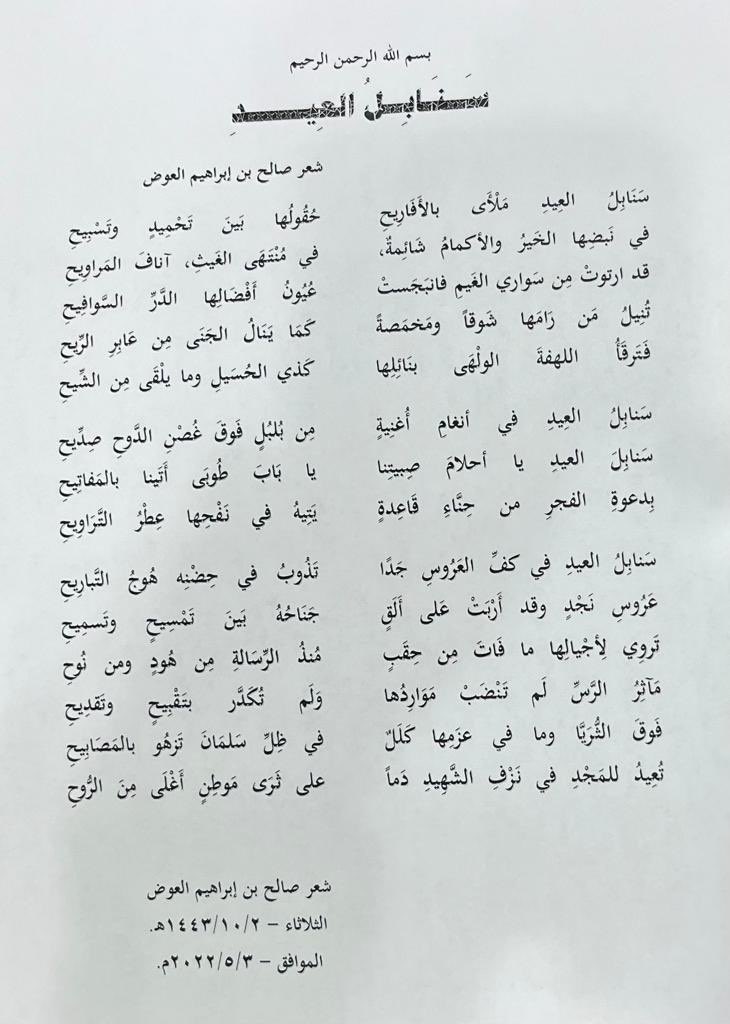 بسم الله الرحمن الرحيم
سَنَابِلُ العِيدِ
شعر صالح بن إبراهيم العوض
سَنَابِلُ العِيدِ مَلْأَى بالأَفَارِيحِ حُقُولُها بَينَ تَحْمِيدٍ وتَسْبِيحِ
في نَبضِها الخَيرُ والأكمامُ شَائمةٌ، في مُنْتَهَى الغَيثِ، آنافَ المَراوِيحِ
قد ارتوتْ مِن سَواري الغَيمِ فانبَجَستْ عُيُونُ أَفْضَالِها الدَّرِّ السَّوافِيحِ
تُنِيلُ مَن رَامَها شَوقاً ومَخمَصةً كَمَا يَنَالُ الجَنَى مِن عَابِرِ الرِّيحِ
فَتَرقَأُ اللهفةَ الولْهَى بنَائِلِها كَذي الحُسَيلِ وما يلْقَى مِن الشِّيحِ
سَنابِلُ العِيدِ في أنغامِ أُغنِيةٍ مِن بُلبُلٍ فَوقَ غُصْنِ الدَّوحِ صِدِّيحِ
سَنابِلَ العيدِ يا أحلامَ صِبيتِنا يا بَابَ طُوبَى أَتَينا بالمَفاتِيحِ
بِدعوةِ الفجرِ من حِنَّاءِ قَاعِدةٍ يَتِيهُ في نَفْحِها عِطْرُ التَّرَاوِيحِ
سَنابِلُ العيدِ في كفِّ العَرُوسِ جَدًا تَذُوبُ في حِضْنِه هُوجُ التَّبارِيحِ
عَرُوسِ نَجْدٍ وقد أَرْبَتْ عَلى أَلَقٍ جَنَاحُهُ بَينَ تَمْسِيحٍ وتَسمِيحِ
تَروِي لِأجْيالِها ما فَاتَ مِن حِقَبٍ مُنذُ الرِّسالةِ مِن هُودٍ ومن نُوحِ
مَآثِرُ الرَّسِّ لَم تَنْضَبْ مَوَارِدُها وَلَم تُكَدَّر بتَقْبِيحٍ وتَقدِيحِ
فَوقَ الثُّرَيَّا وما في عزمِها كَلَلٌ في ظِلِّ سَلمَانَ تَزهُو بالمَصَابِيحِ
تُعِيدُ للمَجْدِ في نَزْفِ الشَّهِيدِ دَماً على ثَرَى مَوطِنٍ أَغْلَى مِنَ الرُّوحِ
شعر صالح بن إبراهيم العوض
الثلاثاء – ١٤٤٣/١٠/٢هـ.
الموافق – ٢٠٢٢/٥/٣م.